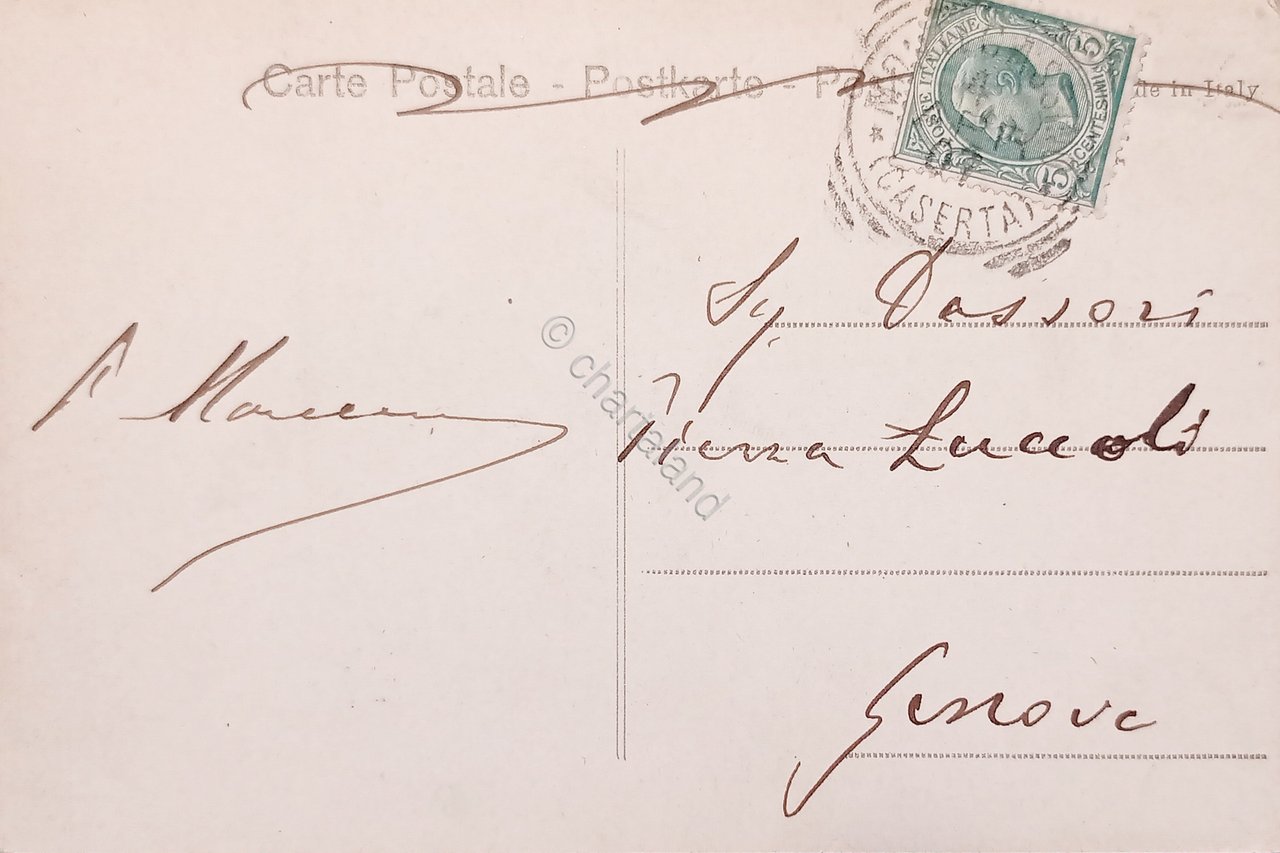 Carte Postale - Postkarte - Po
de in Italy
POSTE ITALIANE
CENTESIMI
5 5
(CASERTA)
Sg. Dassori
Piazza Luccoli
Genova
© chartaland